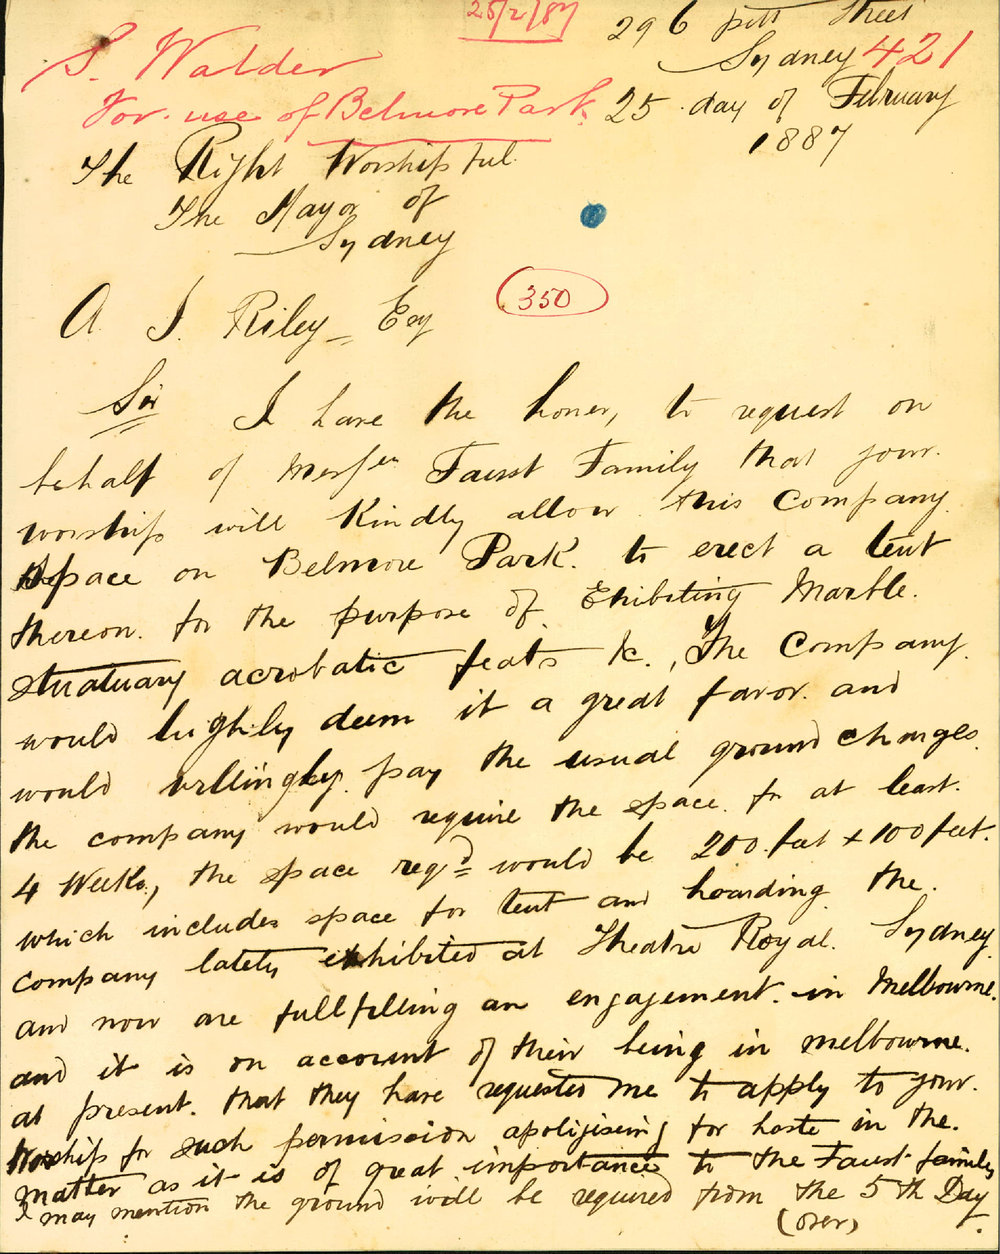 25/2/87
296 pitt Street
Sydney 421
S. Walder
For use of Belmore Park.
25 day of February
1887
The Right Worshipful
The Mayor of
Sydney
350
A. J. Riley Esq
Sir I have the honer, to request on
behalf of Messrs Faust Family that your
worship will Kindly allow this Company
space on Belmore Park. to erect a tent
thereon. for the purpose of Exhibiting Marble.
stuatuary acrobatic feats &c., The Company.
would highly deem it a great favor. and
would willingly. pay the usual ground charges.
the company would require the space. for at least.
4 Weeks., the space reqd would be 200. feet x 100 feet.
which includes space for tent and hoarding the.
company lately exhibited at Theatre Royal. Sydney
and now are fullfilling an engagement. in Melbourne.
and it is on account of their being in melbourne.
at present. that they have requested me to apply to your.
Worship for such permission apoligising for haste in the.
matter as it is of great importance to the Faust family
I may mention the ground will be required from the 5th Day
(over)